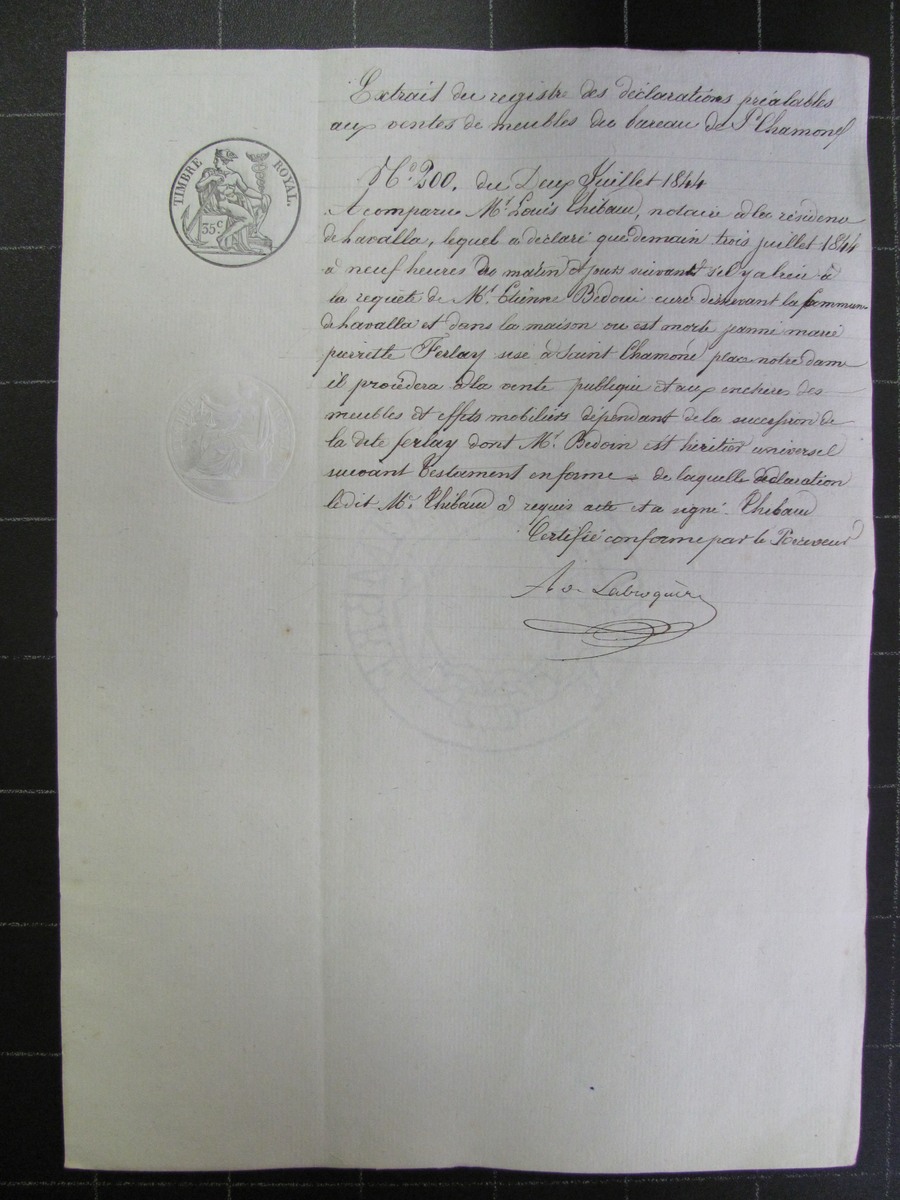 TIMBRE ROYAL.
35 c.
Extrait du registre des déclarations préalables
aux ventes de meubles du bureau de St Chamond
No. 300. du Deux Juillet 1844
A comparu Me. Louis Thibaud, notaire à la résidence
de Lavalla, lequel a déclaré que demain trois juillet 1844
à neuf heures du matin et jours suivants s'il y a lieu à
la requête de Mr. Etienne Bedoin curé desservant la commune
de Lavalla et dans la maison ou est morte jeanne marie
pierrette Ferlay sise à Saint Chamond place notre dame
il procèdera à la vente publique et aux enchères des
meubles et effets mobiliers dépendant de la succession de
la dite ferlay dont Mr. Bedoin est héritier universel
suivant testament en forme de laquelle déclaration
ledit Me. Thibaud a requis acte et a signé. Thibaud
Certifié conforme par le Receveur
Labroquère